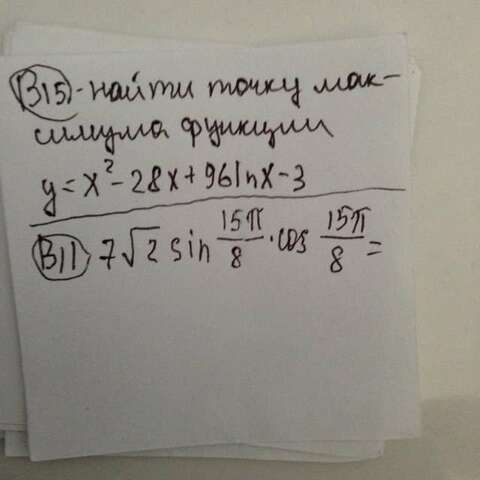 B15 - найти точку мак-
симума функции
y = x² - 28x + 96lnx - 3
B11 7√2 sin 15π/8 · cos 15π/8 =